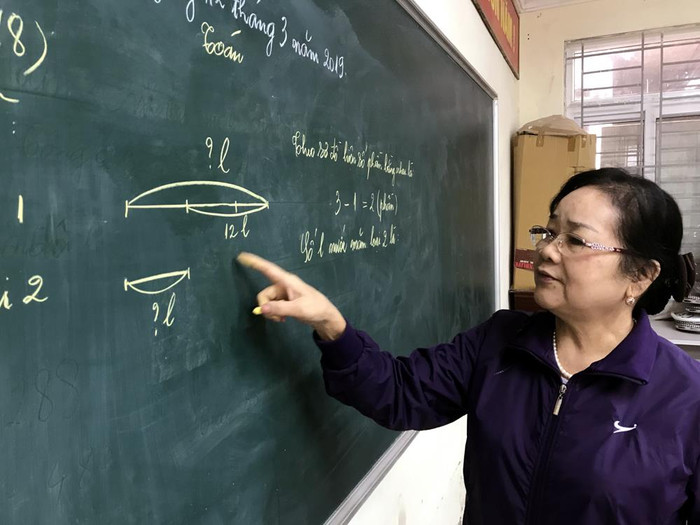 tháng 3 năm 2019.
Toán
8)
? l
Theo sơ đồ hiệu số phần bằng nhau là
1
3 - 1 = 2 (phần)
12 l
Số l nước mắm loại 2 là
i 2
? l